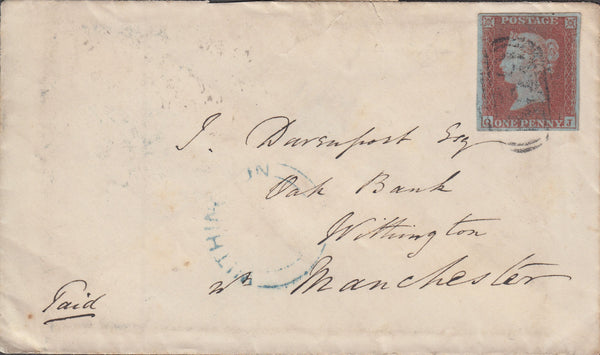 POSTAGE
ONE PENNY
J. Davenport Esq
Oak Bank
Withington
nr Manchester
Paid